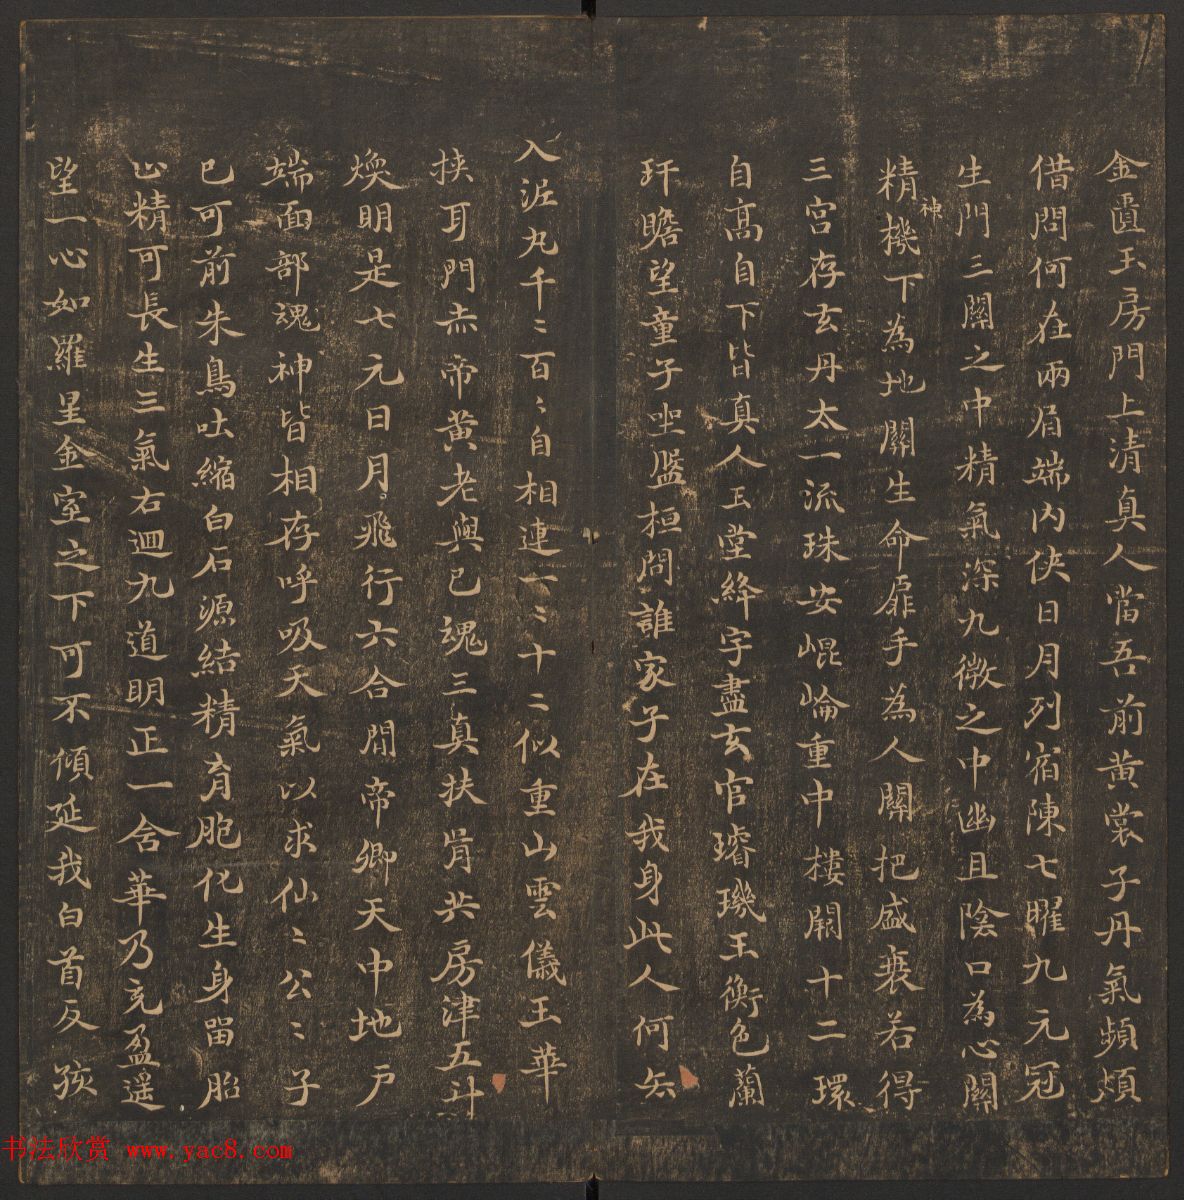 金匱玉房門上清真人當吾前黃裳子丹氣頻煩
借問何在兩眉端內俠日月列宿陳七曜九元冠
生門三關之中精氣深九微之中幽且陰口為心關
精神機下為地關生命扉手為人關把盛衰若得
三宮存玄丹太一流珠安崐崘重中樓閣十二環
自高自下皆真人玉堂絳宇盡玄官璿璣玉衡色蘭
玕瞻望童子坐盤桓問誰家子在我身此人何去
入泥丸千〻百〻自相連一〻十二似重山雲儀玉華
挾耳門赤帝黃老與己魂三真扶胥共房津五斗
煥明是七元日月飛行六合間帝卿天中地户
端面部魂神皆相存呼吸天氣以求仙〻公〻子
已可前朱鳥吐縮白石源結精育胞化生身留胎
止精可長生三氣右迴九道明正一含華乃充盈遥
望一心如羅星金室之下可不傾延我白首反孩
书法欣赏 www.yac8.com